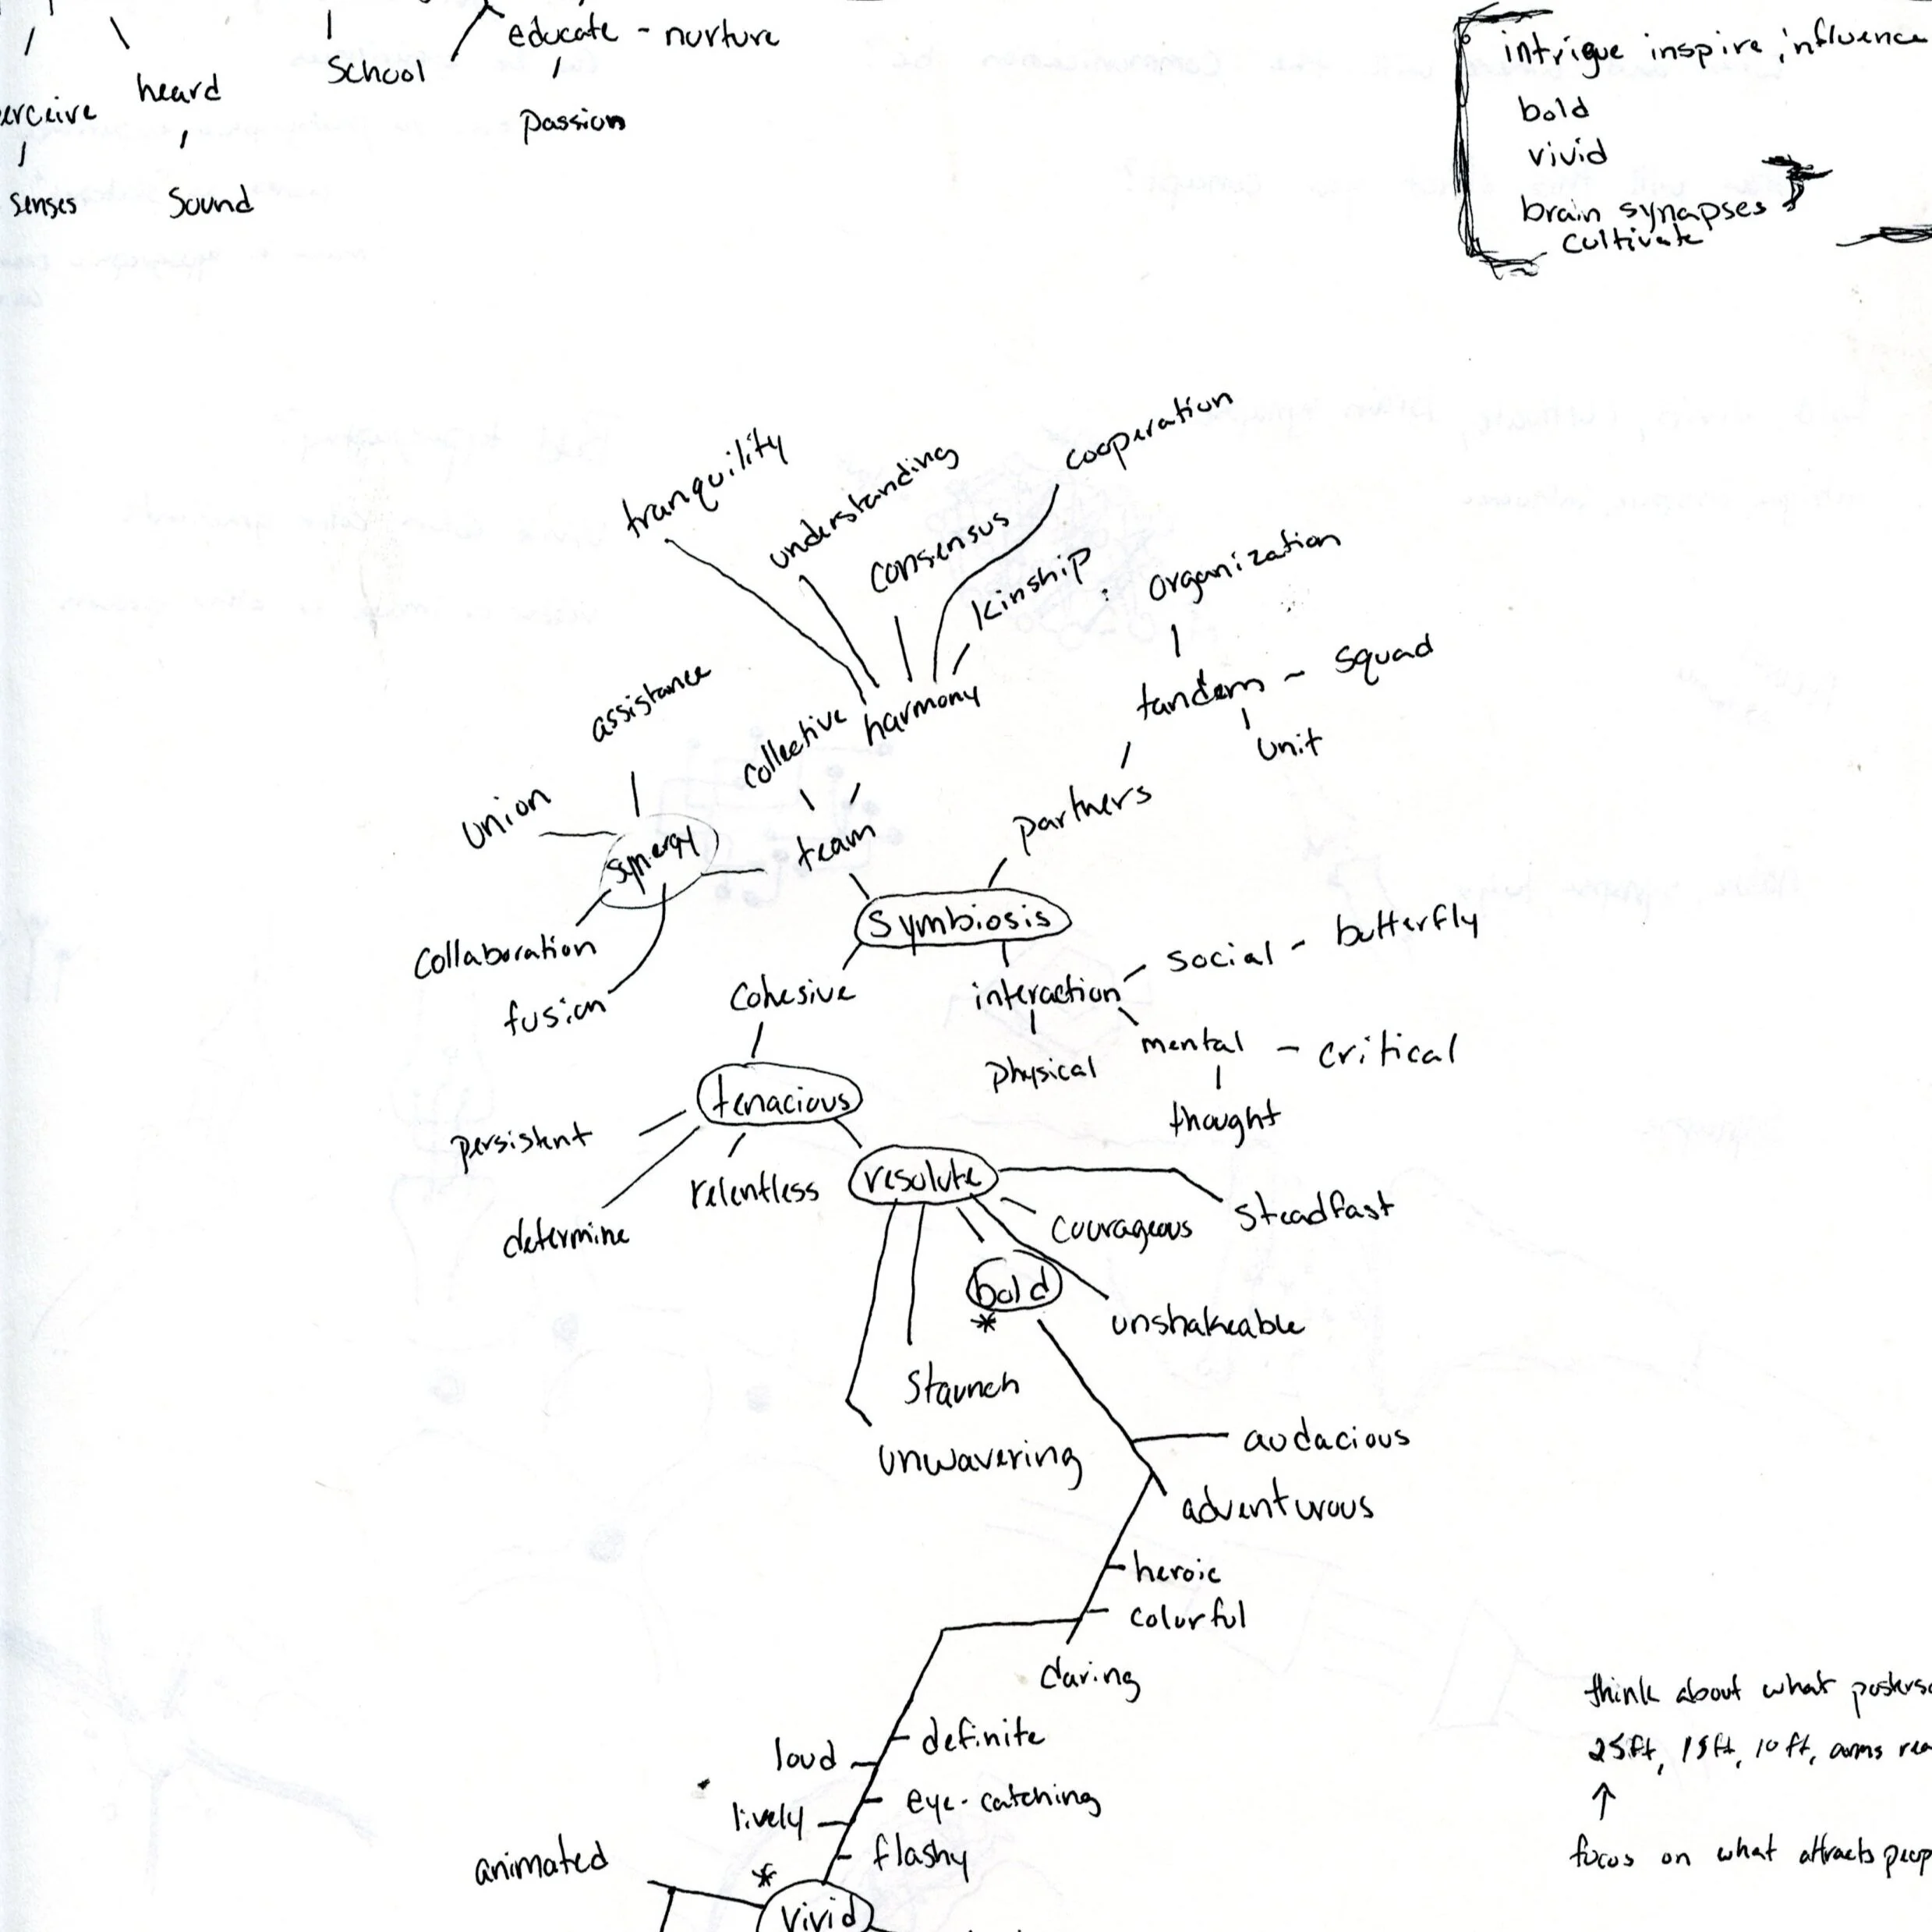 educate - nurture
School
heard
passion
senses
Sound
intrigue inspire influence
bold
vivid
brain synapses
cultivate
cooperation
tranquility
understanding
consensus
kinship
organization
tandem - squad
unit
assistance
collective
harmony
union
synergy
team
partners
Symbiosis
collaboration
fusion
cohesive
interaction
social - butterfly
physical
mental - critical
thought
tenacious
persistent
relentless
determine
resolute
courageous
steadfast
bold
*
unshakeable
staunch
unwavering
audacious
adventurous
heroic
colorful
daring
definite
loud
eye-catching
lively
flashy
animated
*
vivid
think about what
25ft, 15ft, 10ft, arms
↑
focus on what attracts